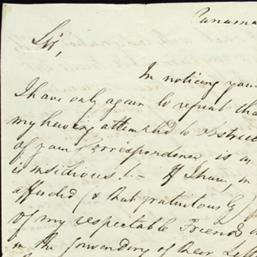 Panama
Sir,
In noticing your
I have only again to repeat that
my having attempted to obstruc
of your Correspondence is a
insidious! - If I have, in
afforded (& that gratuitously
of my respectable Friends
in the forwarding of their Lett